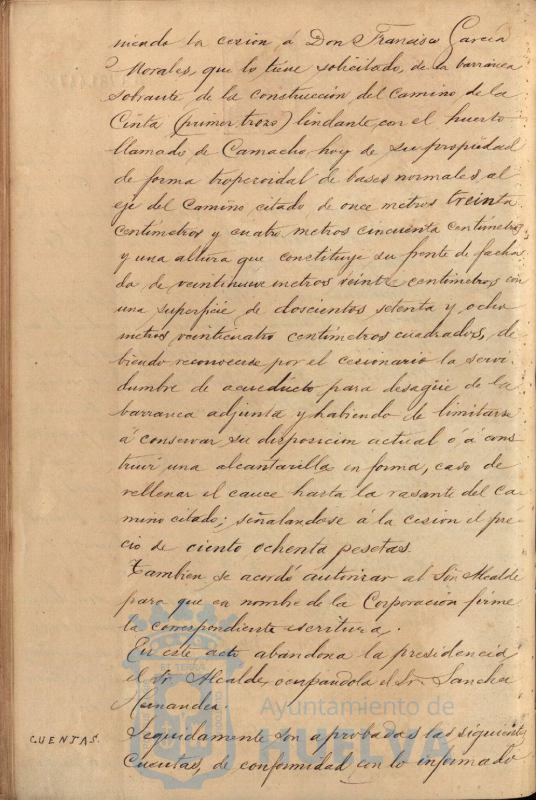 niendo la cesion á Don Francisco Garcia
Morales, que lo tiene solicitado, de la barranca
sobrante de la construccion del Camino de la
Cinta (primer trozo) lindante con el huerto
llamado de Camacho, hoy de su propiedad
de forma troperoidal de bases normales al
eje del Camino citado de once metros treinta
centimetros y cuatro metros cincuenta centimetros
y una altura que constituye su frente de facha
da de veintinueve metros veinte centimetros con
una superficie de doscientos setenta y ocho
metros veinticuatro centimetros cuadrados, de
biendo reconocerse por el cesionario la servi
dumbre de acueducto para desagüe de la
barranca adjunta y habiendo de limitarse
á conservar su disposicion actual ó á cons
truir una alcantarilla en forma, caso de
rellenar el cauce hasta la rasante del ca
mino citado; señalandose á la cesion el pre
cio de ciento ochenta pesetas.
Tambien se acordó autorizar al Sr. Alcalde
para que en nombre de la Corporacion firme
la correspondiente escritura.
En este acto abandona la presidencia
el Sr. Alcalde, ocupandola el Sr. Sanchez
Hernandez.
CUENTAS. Seguidamente son aprobadas las siguientes
Cuentas, de conformidad con lo informado
Ayuntamiento de
HUELVA